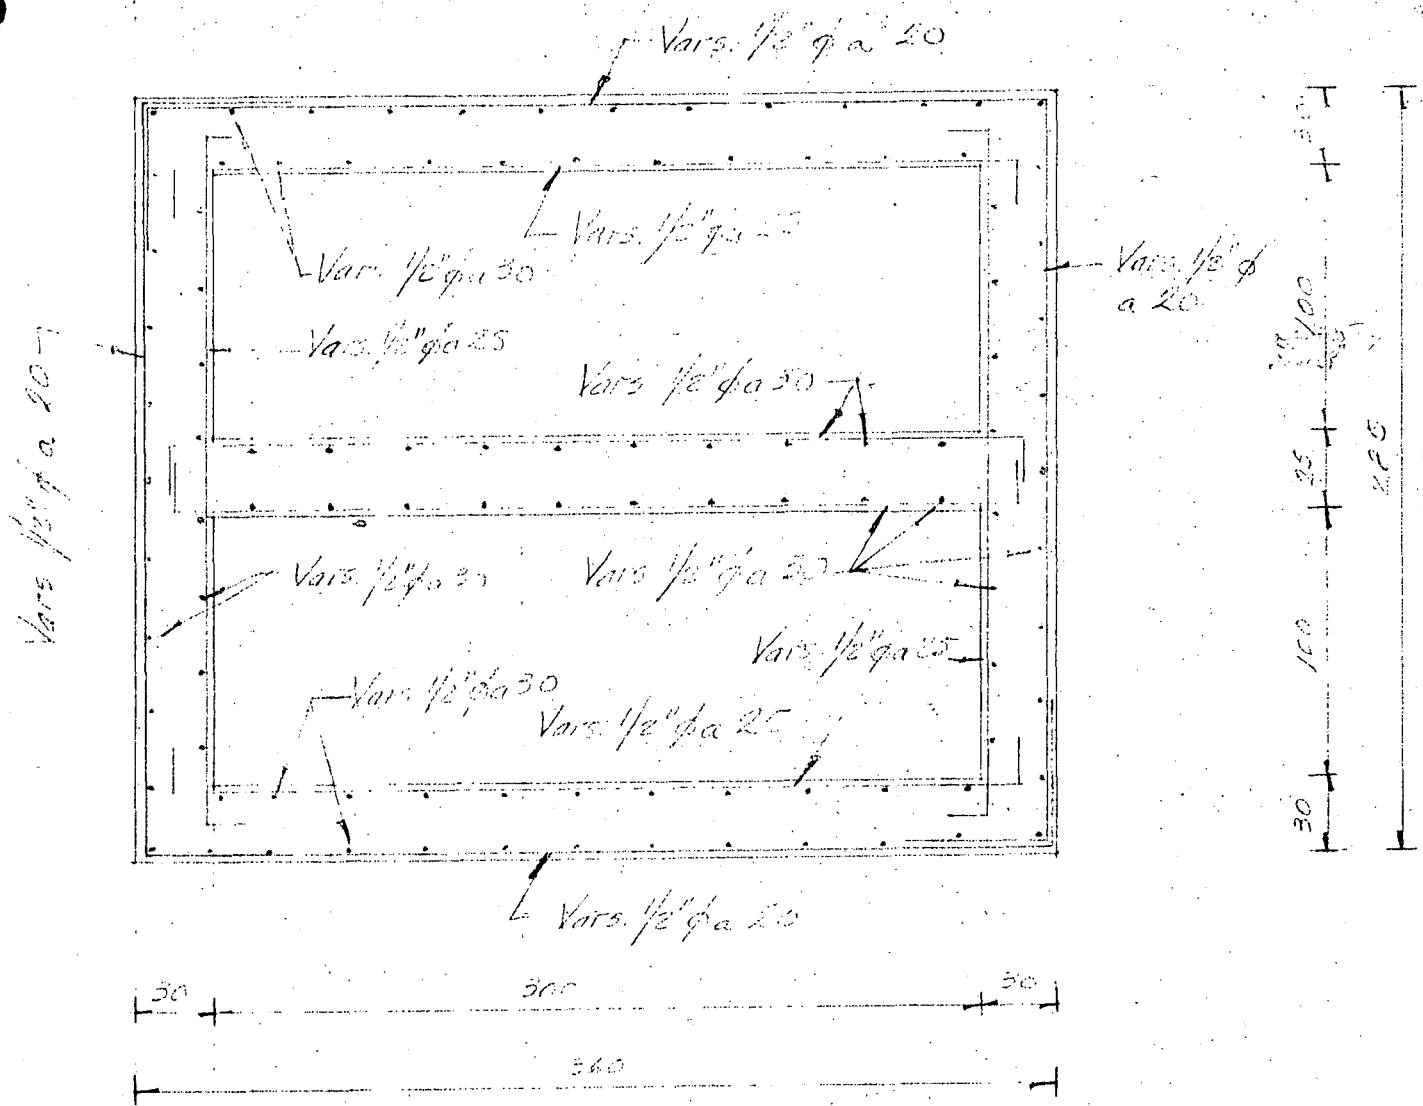 Vars. 1/2" φ a 20
Vars. 1/2" φ a 25
Vars. 1/2" φ a 30
Vars. 1/2" φ
a 20
Vars. 1/2" φ a 25
Vars 1/2" φ a 30
Vars 1/2" φ a 20
Vars. 1/2" φ a 30
Vars 1/2" φ a 30
Vars. 1/2" φ a 25
Vars 1/2" φ a 30
Vars. 1/2" φ a 25
Vars. 1/2" φ a 20
30
100
25
100
30
30
300
30
360